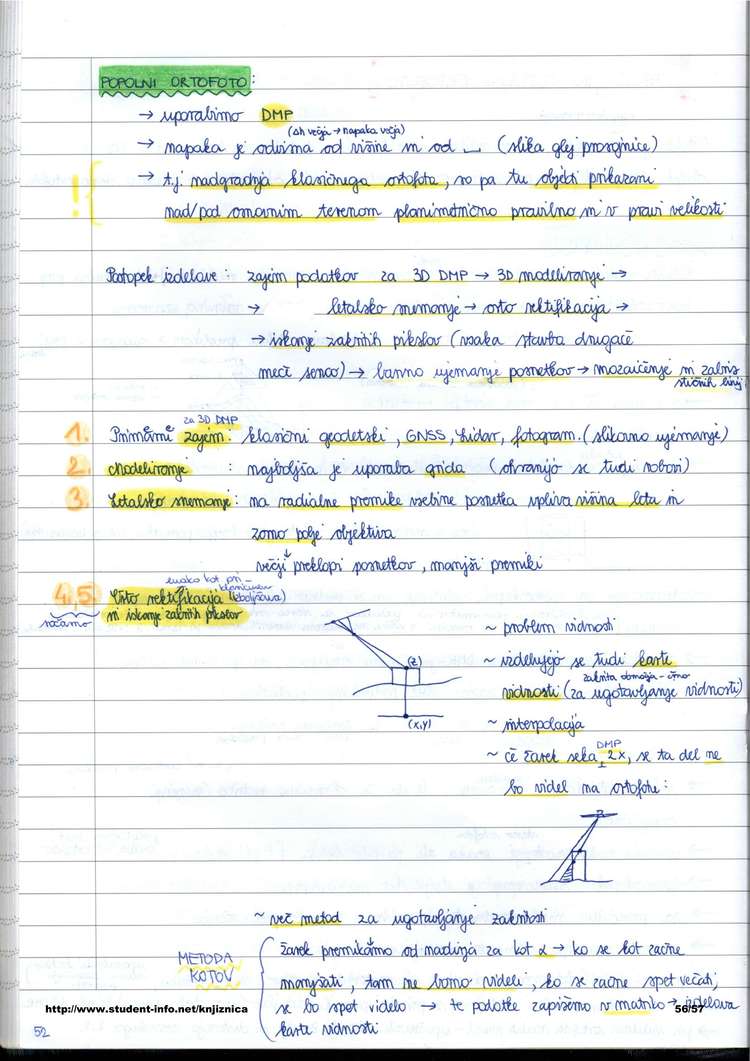 POPOLNI ORTOFOTO:
→ uporabimo DMP
(Δh večja → napaka večja)
→ napaka je odvisna od višine in od (slika glej prosojnice)
! → t.j. nadgradnja klasičnega ortofota, so pa tu objekti prikazani
nad/pod osnovnim terenom planimetrično pravilno in v pravi velikosti
Postopek izdelave: zajem podatkov za 3D DMP → 3D modeliranje →
→ letalsko snemanje → orto rektifikacija →
→ iskanje zakritih pikslov (vsaka stavba drugače
meče senco) → barvno ujemanje posnetkov → mozaičenje in zabris
stičnih linij
za 3D DMP
1. Primarni zajem: klasični geodetski, GNSS, Lidar, fotogram. (slikovno ujemanje)
2. Modeliranje : najboljša je uporaba grida (ohranijo se tudi robovi)
3. Letalsko snemanje: na radialne premike vsebine posnetka vpliva višina leta in
zorno polje objektiva
↓
večji preklopi posnetkov, manjši premiki
enako kot pri
klasičnem
4,5. Orto rektifikacija (izboljšava)
in iskanje zakritih pikslov
ročamo
(z)
(x,y)
~ problem vidnosti
~ izdelujejo se tudi karte
zakrita območja - črno
vidnosti (za ugotavljanje vidnosti)
~ interpolacija
DMP
~ če žarek seka 2x, se ta del ne
bo videl na ortofote:
~ več metod za ugotavljanje zakritosti
METODA
KOTOV
žarek premikamo od nadirja za kot α → ko se kot začne
manjšati, tam ne bomo videli, ko se začne spet večati,
se bo spet videlo → te podatke zapišemo v matriko → izdelava
karte vidnosti
http://www.student-info.net/knjiznica
56/57
52